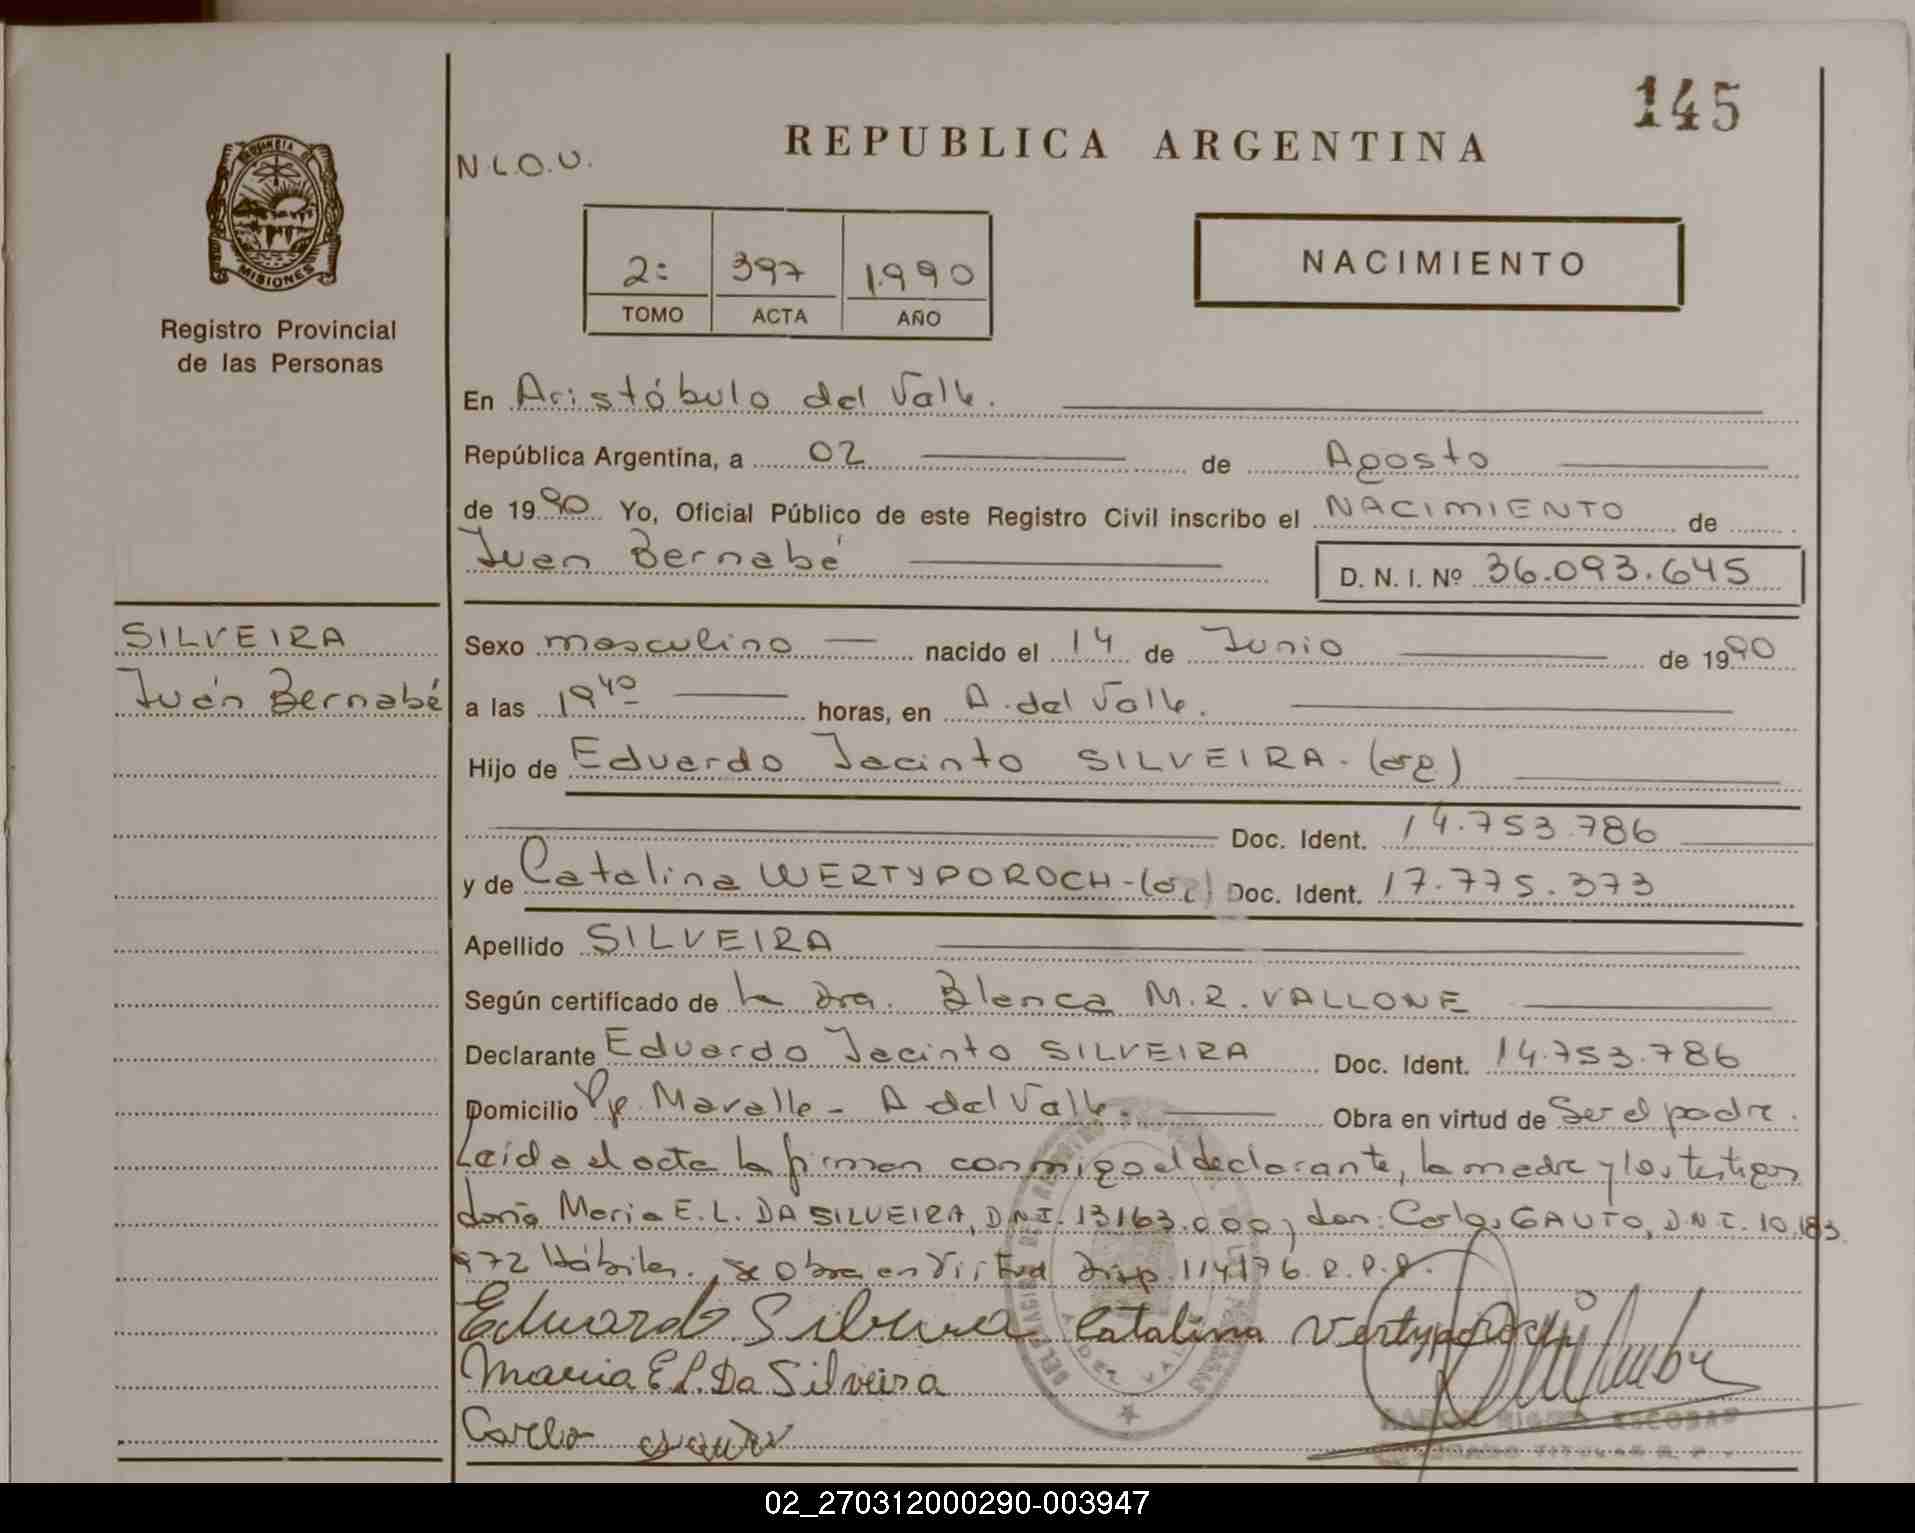 145
REPUBLICA ARGENTINA
N.L.O.U.
MISIONES
Registro Provincial
de las Personas
2: 397 1.990
TOMO ACTA AÑO
NACIMIENTO
En Aristóbulo del Valle.
República Argentina, a 02 de Agosto
de 1990 Yo, Oficial Público de este Registro Civil inscribo el NACIMIENTO de
Juan Bernabé
D. N. I. Nº 36.093.645
SILVEIRA
Juán Bernabé
Sexo masculino nacido el 14 de Junio de 1990
a las 19 40 horas, en A. del Valle.
Hijo de Eduardo Jacinto SILVEIRA. (arg)
Doc. Ident. 14.753.786
y de Catalina WERTYPOROCH-(arg) Doc. Ident. 17.775.373
Apellido SILVEIRA
Según certificado de la Dra. Blanca M.R. VALLONE
Declarante Eduardo Jacinto SILVEIRA Doc. Ident. 14.753.786
Domicilio Pje. Maralle - A del Valle. Obra en virtud de Ser el padre.
Leída el acta la firman conmigo el declarante, la madre y los testigos
doña Maria E. L. DA SILVEIRA, D.N.I. 13163.000, don: Carlos GAUTO, D.N.I. 10.183
972 Hábiles. Se obra en Virtud Disp. 114/76. R.P.P.
Eduardo Silveira Catalina Vertyporoch
Maria E L. Da Silveira
Carlos Gauto
RAMON HIGINIO ESCOBAR
TITULAR R. P.
02_270312000290-003947